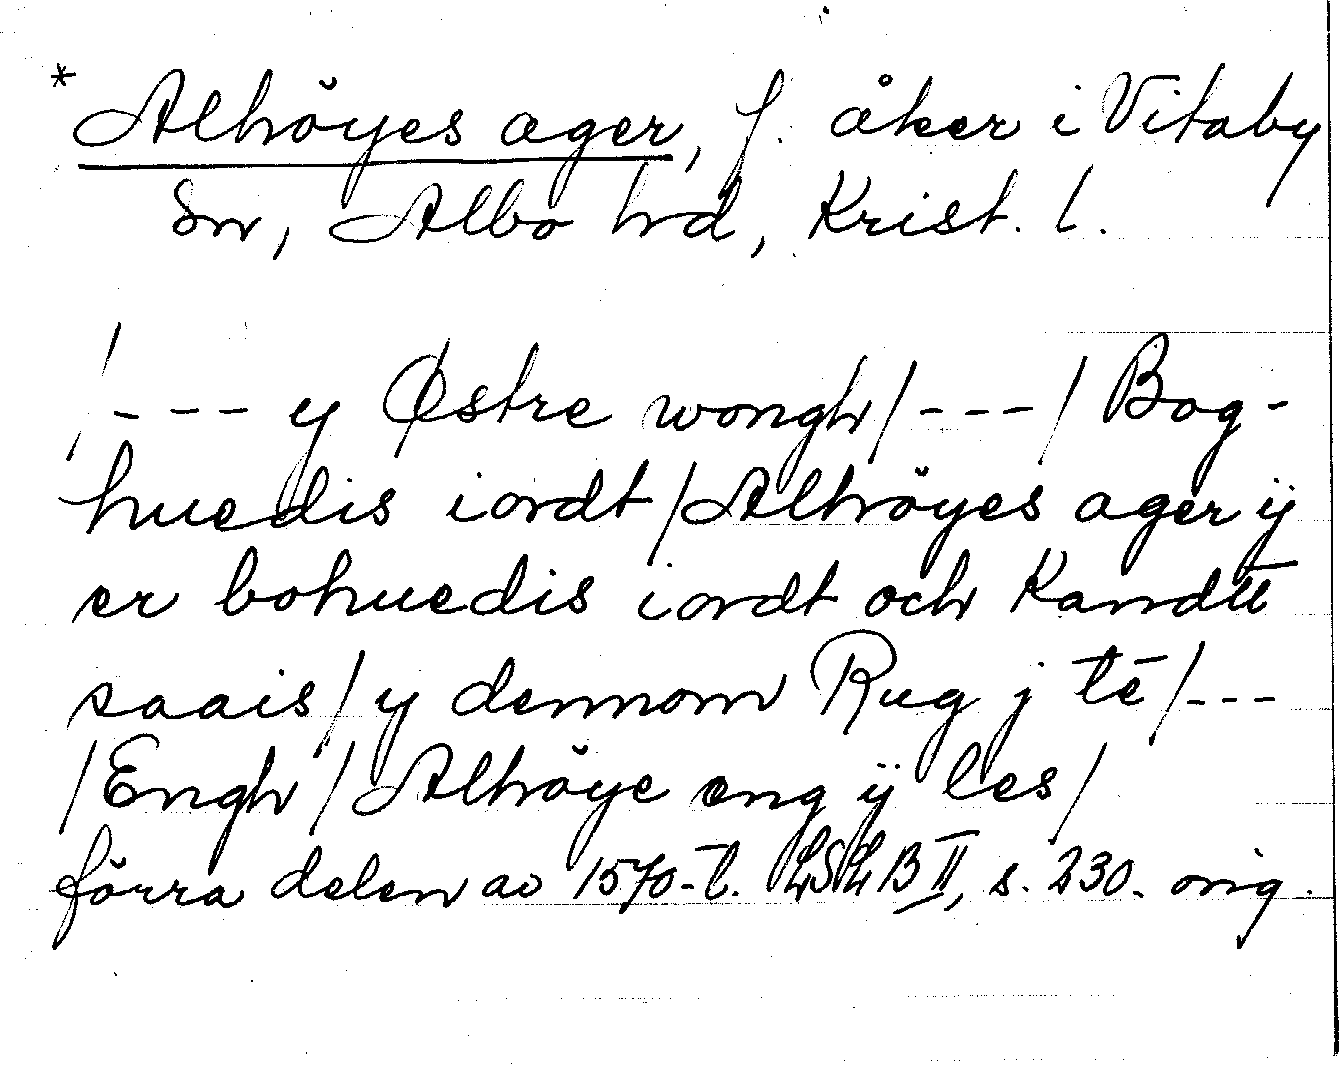 *Alhöyes ager, f. åker i Vitaby
sn, Albo hd, Krist. l.
/--- y Østre wongh/---/ Bog-
huedis iordt/Alhöyes ager ÿ
er bohuedis iordt och Kandtt
saais/y dennom Rug j te̅/---
/Engh/Alhöye eng ÿ les/
förra delen av 1570-t. LSLB II, s. 230. orig.